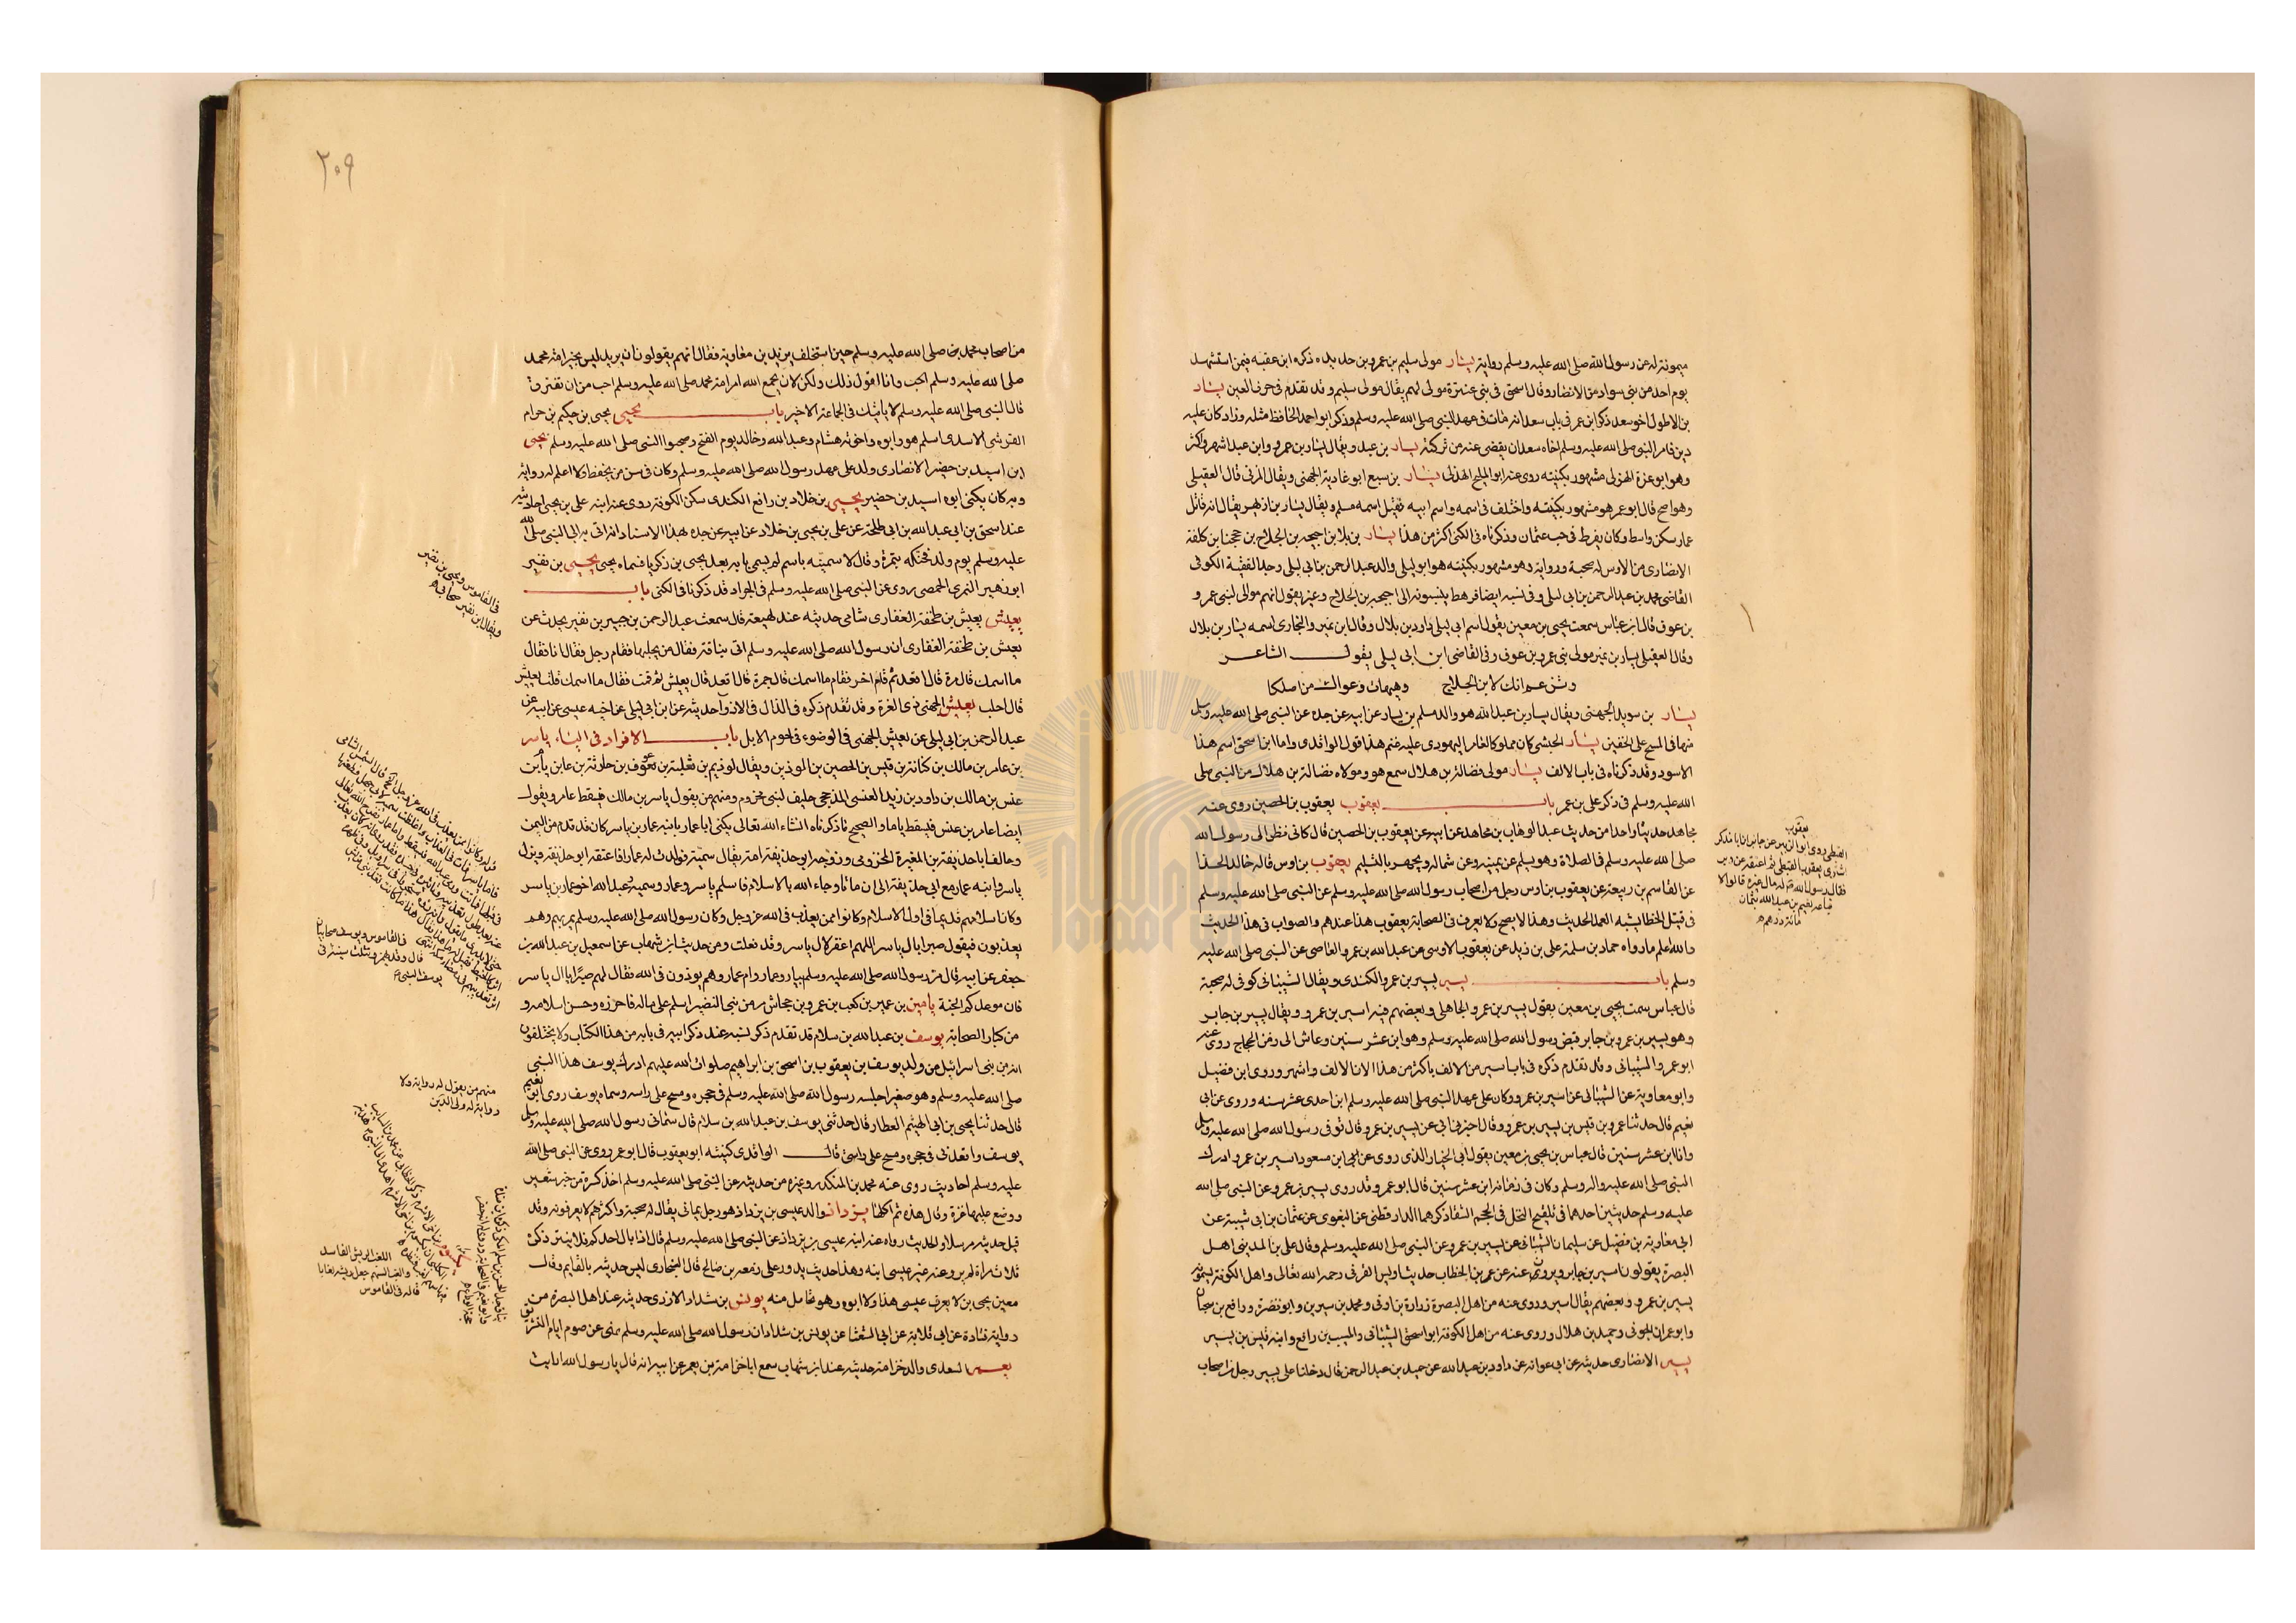 ميمونة له عن رسول الله صلى الله عليه وسلم رواية يسار مولى سليم بن عمرو بن حديده ذكره ابن عقبه فيمن استشهد
يوم احد من بنى سواد من الانصار وقال اسحق فى بنى عنترة مولى لهم يقال مولى سليم وقد تقدم فى حرف العين يسار
بن الاطول اخو سعد ذكر ابن عمر فى باب سعد انه مات فى عهد النبى صلى الله عليه وسلم وذكر ابو احمد الحافظ مثله وزاد كان عليه
دين فامر النبى صلى الله عليه وسلم اخاه سعدان يقضى عنه من تركته يسار بن عبد ويقال يسار بن عمرو وابن عبد اشهر واكثر
وهو ابو عزة الهذلى مشهور بكنيته روى عنه ابو المليح الهذلى يسار بن سبع ابو غادية الجهنى ويقال المزنى قال العقيلى
وهو اصح قال ابو عمر هو مشهور بكنيته واختلف فى اسمه واسم ابيه فقيل اسمه مسلم ويقال يسار بن ازيهر يقال انه قاتل
عمار سكن واسط وكان يفرط فى حب عثمان وذكرناه فى الكنى اكثر من هذا يسار بن بلال بن احيحه بن الجلاح بن حججبا بن كلفة
الانصارى من الاوس له صحبة ورواية وهو مشهور بكنيته هو ابو ليلى والد عبد الرحمن بن ابى ليلى وجد الفقيه الكوفى
القاضى محمد بن عبد الرحمن بن ابى ليلى وفى نسبه ايضا فرهط ينسبونه الى احيحه بن الجلاح وغيره يقول انهم موالى لبنى عمرو
بن عوف قال ابن عباس سمعت يحيى بن معين يقول اسم ابى ليلى داود بن بلال وقال ابن نمير والبخارى اسمه يسار بن بلال
وقال العقيلى يسار بن نمير مولى بنى عمرو بن عوف وفى القاضى ابن ابى ليلى يقول الشاعر
وتزعم انك لابن الجلاح وهيهات دعواك من اصلكا
يسار بن سويد الجهنى ويقال يسار بن عبد الله هو والد مسلم بن يسار عن ابيه عن جده عن النبى صلى الله عليه وسلم
منها فى المسح على الخفين يسار الحبشى كان مملوكا لعامر اليهودى عليه غنم هذا قول الواقدى واما ابن اسحق اسم هذا
الاسود وقد ذكرناه فى باب الالف يسار مولى فضالة بن هلال سمع هو ومولاه فضالة بن هلال من النبى صلى
الله عليه وسلم فى ذكر على بن عمر باب يعقوب يعقوب بن الحصين روى عنه
مجاهد حديثا واحدا من حديث عبد الوهاب بن مجاهد عن ابيه عن يعقوب بن الحصين قال كانى انظر الى رسول الله
صلى الله عليه وسلم فى الصلاة وهو يسلم عن يمينه وعن شماله ويجهر بالتسليم يعقوب بن اوس قاله خالد الحذا
عن القاسم بن ربيعة عن يعقوب بن اوس رجل من اصحاب رسول الله صلى الله عليه وسلم عن النبى صلى الله عليه وسلم
فى قتيل الخطا شبه العمد الحديث وهذا لا يصح ولا يعرف فى الصحابة يعقوب هذا عندهم والصواب فى هذا الحديث
والله اعلم ما رواه حماد بن سلمة على بن زيد عن يعقوب الاوسى عن عبد الله بن عمرو العاصى عن النبى صلى الله عليه
وسلم باب يسير يسير بن عمرو الكندى ويقال الشيبانى كوفى له صحبة
قال عباس سمت يحيى بن معين يقول يسير بن عمرو الجاهلى وبعضهم فيه اسير بن عمرو ويقال يسير بن جابر
وهو يسير بن عمرو بن جابر قبض رسول الله صلى الله عليه وسلم وهو ابن عشر سنين وعاش الى زمن الحجاج روى عنه
ابو عمرو الشيبانى وقد تقدم ذكره فى باب اسير من الالف باكثر من هذا لان الالف واشهر وروى ابن فضيل
وابو معاوية عن الشيبانى عن اسير بن عمرو وكان على عهد النبى صلى الله عليه وسلم ابن احدى عشر سنه وروى عن ابى
نعيم قال حدثنا عمرو بن قيس بن يسير بن عمرو وقال اخبرنى ابى عن يسير بن عمرو قال توفى رسول الله صلى الله عليه وسلم
وانا ابن عشر سنين قال عباس بن يحيى بن معين يقول ابى الخيار الذى روى عن ابى ابن مسعود اسير بن عمرو ادرك
النبى صلى الله عليه واله وسلم وكان فى زمانه ابن عشر سنين قال ابو عمرو وقد روى يسير بن عمرو عن النبى صلى الله
عليه وسلم حديثين احدهما فى تلقيح النخل فى الحجم الشفا ذكرهما الدارقطنى عن البغوى عن عثمان بن ابى شيبة عن
ابى معاوية بن فضيل عن سليمان الشيبانى عن يسير بن عمرو عن النبى صلى الله عليه وسلم وقال على بن المدينى اهل
البصرة يقولون اسير بن جابر ويروون عنه عن عمر بن الخطاب حديث اويس القرنى رحمه الله تعالى واهل الكوفة يسمونه
يسير بن عمرو وبعضهم يقال اسير وروى عنه من اهل البصرة زرارة بن اوفى ومحمد بن سيرين وابو نضرة ورافع بن سحبان
وابو عمران الجونى وحميد بن هلال وروى عنه من اهل الكوفة ابو اسحق الشيبانى والمسيب بن رافع وابنه قيس بن يسير
يسير الانصارى حديثه عن ابى عوانه عن داود بن عبد الله عن حميد بن عبد الرحمن قال دخلنا على يسير رجل من اصحاب
يعقوب
القبطى روى ابو الزبير عن جابر ان ابا مذكر
اشترى يعقوب القبطى ثم اعتقه عن دبر
فقال رسول الله له مال غيره قالوا لا
فباعه نعيم بن عبد الله بثمان
مائة درهم
٢٠٩
من اصحاب محمد بن صلى الله عليه وسلم حين استخلف يزيد بن معاوية فقال انهم يقولون ان يزيد ليس بخير امة محمد
صلى الله عليه وسلم احب وانا اقول ذلك ولكن لان يجمع الله امر امة محمد صلى الله عليه وسلم احب من ان تفترق
قال النبى صلى الله عليه وسلم لا ياتيك فى الجماعة الا خير باب يحيى يحيى بن حكيم بن حزام
القرشى الاسدى اسلم هو وابوه واخوته هشام وعبد الله وخالد يوم الفتح وصحبوا النبى صلى الله عليه وسلم يحيى
ابن اسيد بن حضير الانصارى ولد على عهد رسول الله صلى الله عليه وسلم وكان فى سن من يحفظ لا اعلم له رواية
وبه كان يكنى ابوه اسيد بن حضير يحيى بن خلاد بن رافع الكندى سكن الكوفة روى عنه ابنه على بن يحيى احاديثه
عند اسحق بن ابى عبد الله بن ابى طلحة عن على بن يحيى بن خلاد عن ابيه عن جده بهذا الاسناد انه اتى به الى النبى صلى الله
عليه وسلم يوم ولد فحنكه بتمرة وقال لاسمينه باسم لم يسمى به بعد يحيى بن زكريا فسماه يحيى يحيى بن نفير
ابو زهير النمرى الحمصى روى عن النبى صلى الله عليه وسلم فى الجراد قد ذكرنا فى الكنى باب
يعيش يعيش بن طخفة الغفارى شامى حديثه عند لهيعة قال سمعت عبد الرحمن بن جبير بن نفير يحدث عن
يعيش بن طخفة الغفارى ان رسول الله صلى الله عليه وسلم اتى بناقة فقال من يحلبها فقام رجل فقال انا فقال
ما اسمك قال مرة قال اقعد ثم قام اخر فقام ما اسمك قال جمرة قال اقعد قال يعيش ثم قمت فقال ما اسمك قلت يعيش
قال احلب يعيش الجهنى ذى الغرة وقد تقدم ذكره فى الذال فى الاذوآ حديثه عن ابن ابى ليلى عن اخيه عيسى عن ابيه عن
عبد الرحمن بن ابى ليلى عن يعيش الجهنى فى الوضوء فى لحوم الابل باب الافراد فى الياء ياسر
بن عامر بن مالك بن كنانة بن قيس بن الحصين بن الوذين ويقال لوذيم بن ثعلبة بن عوف بن حارثة بن عامر بن يام بن
عنس بن مالك بن داود بن زيد العنسى المذحجى حليف لبنى مخزوم ومنهم من يقول ياسر بن مالك فيسقط عامر ويقول
ايضا عامر بن عنس فيسقط ياما والصحيح ما ذكرناه انشاء الله تعالى يكنى ابا عمار بابنه عمار بن ياسر كان قد قدم من اليمن
وحالف ابا حذيفة بن المغيرة المخزومى وزوجه ابو حذيفة امة يقال سمية فولدت له عمارا فاعتقه ابو حذيفة ونزل
ياسر وابنه عمار مع ابى حذيفة الى ان مات وجاء الله بالاسلام فاسلم ياسر وعمار وسميه وعبد الله اخو عمار بن ياسر
وكان اسلامهم قديما فى اول الاسلام وكانوا ممن يعذب فى الله عز وجل وكان رسول الله صلى الله عليه وسلم يمر بهم وهم
يعذبون فيقول صبرا يال ياسر اللهم اغفر لال ياسر وقد فعلت ومن حديث ابن شهاب عن اسمعيل بن عبد الله بن
جعفر عن ابيه قال مر رسول الله صلى الله عليه وسلم بياسر وعمار وام عمار وهم يوذون فى الله فقال لهم صبرا يال ياسر
فان موعدكم الجنة يامين بن عمير بن كعب بن عمرو بن جحاش من بنى النضير اسلم على ماله فاحرزه وحسن اسلامه و
من كبار الصحابه يوسف بن عبد الله بن سلام قد تقدم ذكر نسبه عند ذكر ابيه فى بابه من هذا الكتاب ولا يختلفون
انه من بنى اسرائيل من ولد يوسف بن يعقوب بن اسحق بن ابراهيم صلوات الله عليهم ادرك يوسف هذا النبى
صلى الله عليه وسلم وهو صغير اجلسه رسول الله صلى الله عليه وسلم فى حجره ومسح على راسه وسماه يوسف روى ابو نعيم
قال حدثنا يحيى بن ابى الهيثم العطار قال حدثنى يوسف بن عبد الله بن سلام قال سمانى رسول الله صلى الله عليه وسلم
يوسف واقعدنى فى حجره ومسح على راسى قال الواقدى كنيته ابو يعقوب قال ابو عمر روى عن النبى صلى الله
عليه وسلم احاديث روى عنه محمد بن المنكدر وغيره من حديثه عن النبى صلى الله عليه وسلم اخذ كسرة من خبز شعير
ووضع عليها تمرة وقال هذه ثم اكلها يزداد والد عيسى بن يزداذ هو رجل يمانى يقال له صحبة واكثرهم لا يعرفونه وقد
قيل حديثه مرسل والحديث رواه عنه ابنه عيسى بن يزداذ عن النبى صلى الله عليه وسلم قال اذا بال احدكم فلينتر ذكره
ثلاث مرات لم يرو عنه غير عيسى ابنه وهذا حديث يدور على زمعه بن صالح قال البخارى ليس حديثه بالقايم وقال
معين يحيى بن لا يعرف عيسى هذا ولا ابوه وهو تحامل منه يونس بن شداد الازدى حديثه عند اهل البصرة من
رواية قتادة عن ابى قلابة عن ابى الشعثا عن يونس بن شداد ان رسول الله صلى الله عليه وسلم نهى عن صوم ايام التشريق
يعمر السعدى والد خزامة حديثه عند ابن شهاب سمع ابا خزامة بن يعمر عن ابيه انه قال يا رسول الله ارايت
فى القاموس يحيى بن نفير
ويقال ابن نفير صحابى
فى القاموس ويوسف صحابيان
قال وقد يهمز وتثلث سينه فى
يوسف النبى
منهم من يقول له رواية ولا
رواية له ولى الدين
قاله فى القاموس